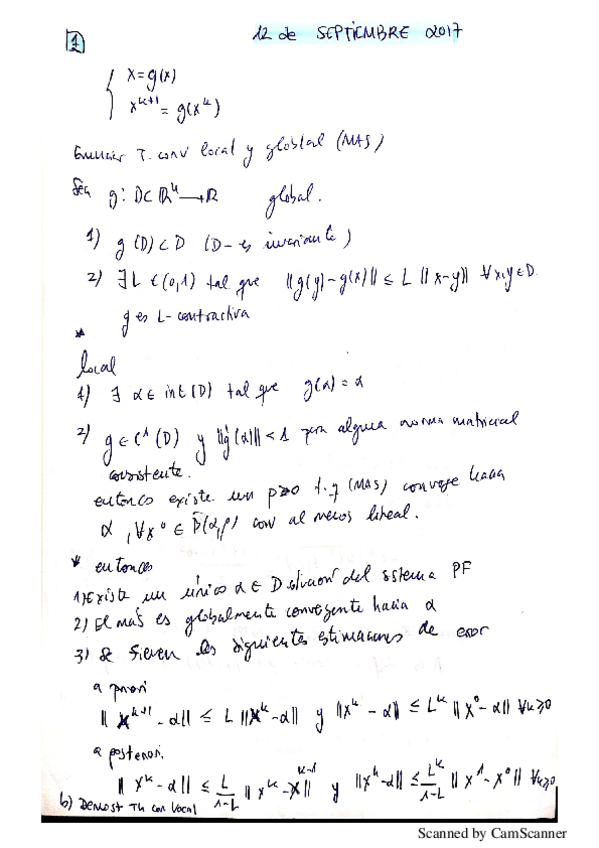 1
12 de SEPTIEMBRE 2017
x = g(x)
x^{k+1} = g(x^k)
Enunciar T. conv local y globlal (MAS)
Sea g: D⊂ℝ^n → ℝ global.
1) g(D)⊂D (D - es invariante)
2) ∃ L ∈ (0,1) tal que ||g(y) - g(x)|| ≤ L ||x-y|| ∀x,y∈D.
g es L-contractiva
*
local
1) ∃ α ∈ int(D) tal que g(α) = α
2) g ∈ C^1(D) y ||g'(α)|| < 1 para alguna norma matricial
consistente.
entonces existe un ρ>0 t.q (MAS) converge hacia
α, ∀x^0 ∈ B(α,ρ) con al menos lineal.
* entonces
1) Existe un único α ∈ D solución del sistema PF
2) El mas es globalmente convergente hacia α
3) Se tienen las siguientes estimaciones de error
a priori
||x^{k+1} - α|| ≤ L ||x^k - α|| y ||x^k - α|| ≤ L^k ||x^0 - α|| ∀k≥0
a posteriori.
||x^k - α|| ≤ L/(1-L) ||x^k - x^{k-1}|| y ||x^k - α|| ≤ L^k/(1-L) ||x^1 - x^0|| ∀k≥0
b) Demost Th con local
Scanned by CamScanner